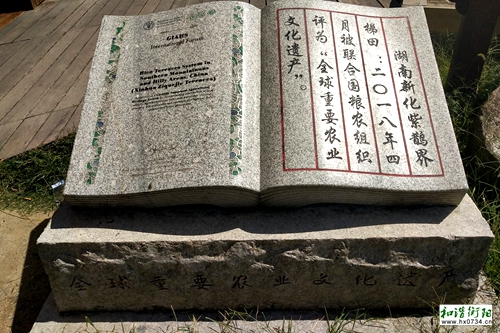 GIAHS
International Forum
Rice Terraces System in
Southern Mountainous
and Hilly Area, China
(Xinhua Ziquejie Terraces)
湖南新化紫鹊界
梯田:二〇一八年四
月被联合国粮农组织
评为“全球重要农业
文化遗产”。
全球重要农业文化遗产
和谐衡阳
www.hx0734.cn